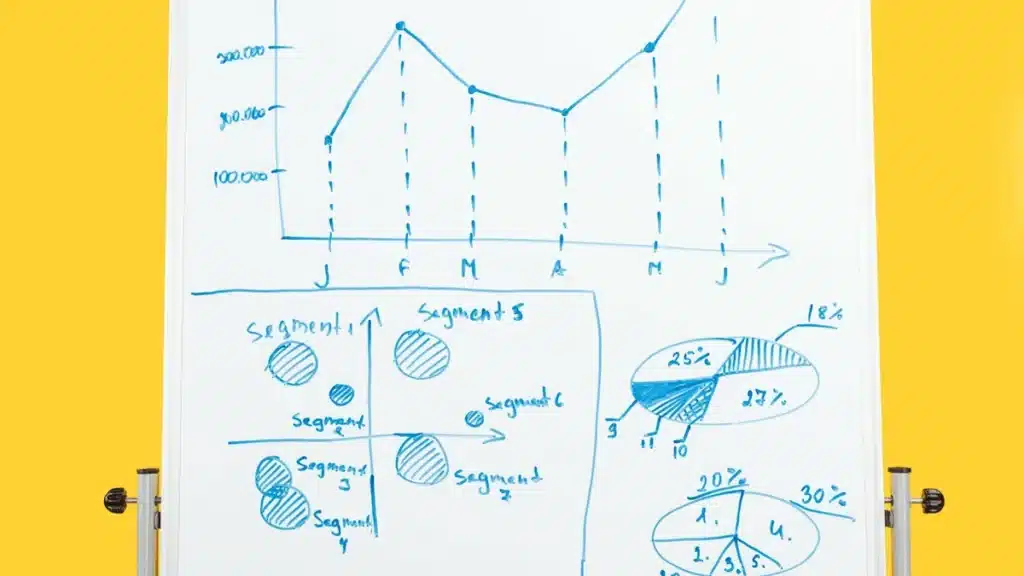 300.000
200.000
100.000
J F M A M J
Segment 1
Segment 5
Segment 2
Segment 6
Segment 3
Segment 7
Segment 4
18%
25%
27%
9
11
10
20%
30%
1.
4.
2.
3.
5.